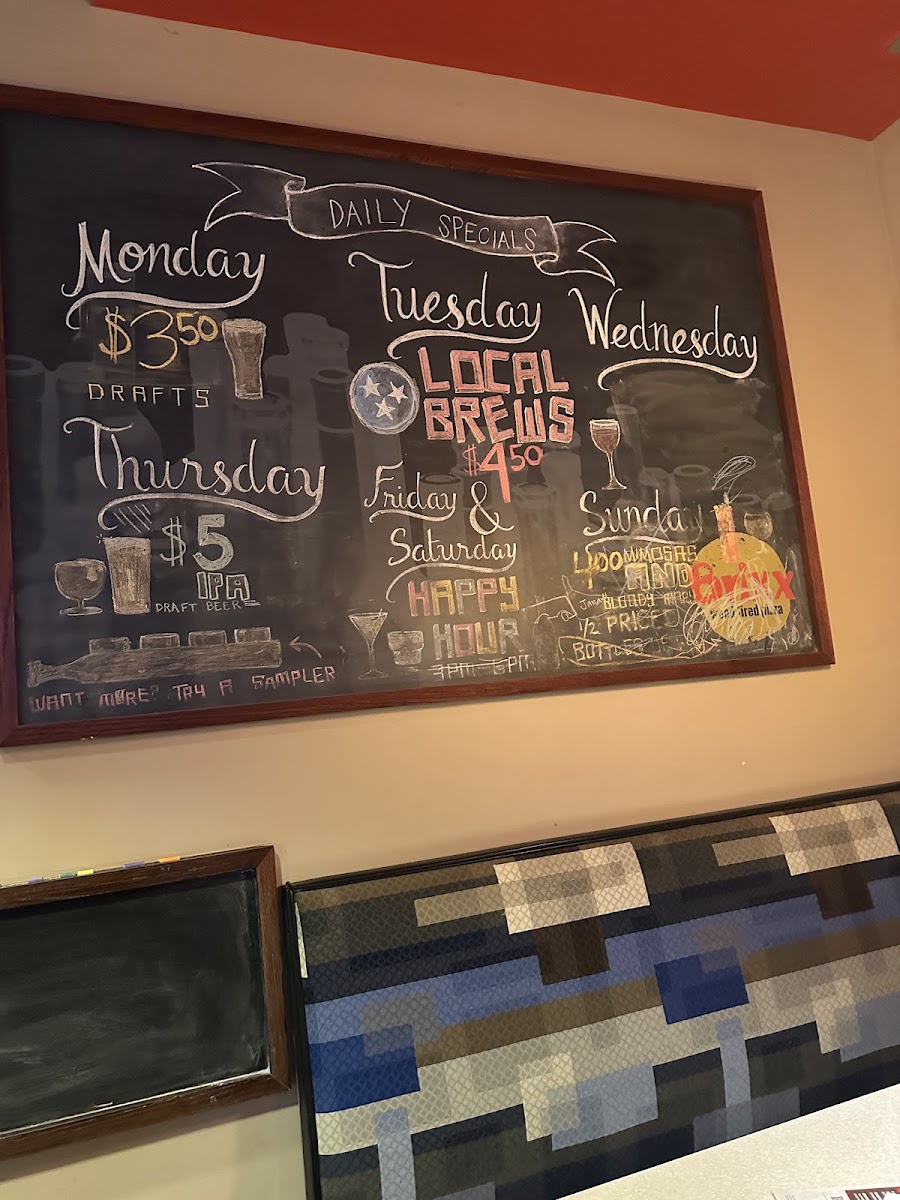 DAILY SPECIALS
Monday
$3.50
DRAFTS
Tuesday
LOCAL
BREWS
$4.50
Wednesday
Thursday
$5
IPA
DRAFT BEER
WANT MORE? TRY A SAMPLER
Friday &
Saturday
HAPPY
HOUR
3PM-6PM
Sunday
400 MIMOSAS
AND
BLOODY MARY
1/2 PRICED
BOTTLES
Brixx
wood fired pizza